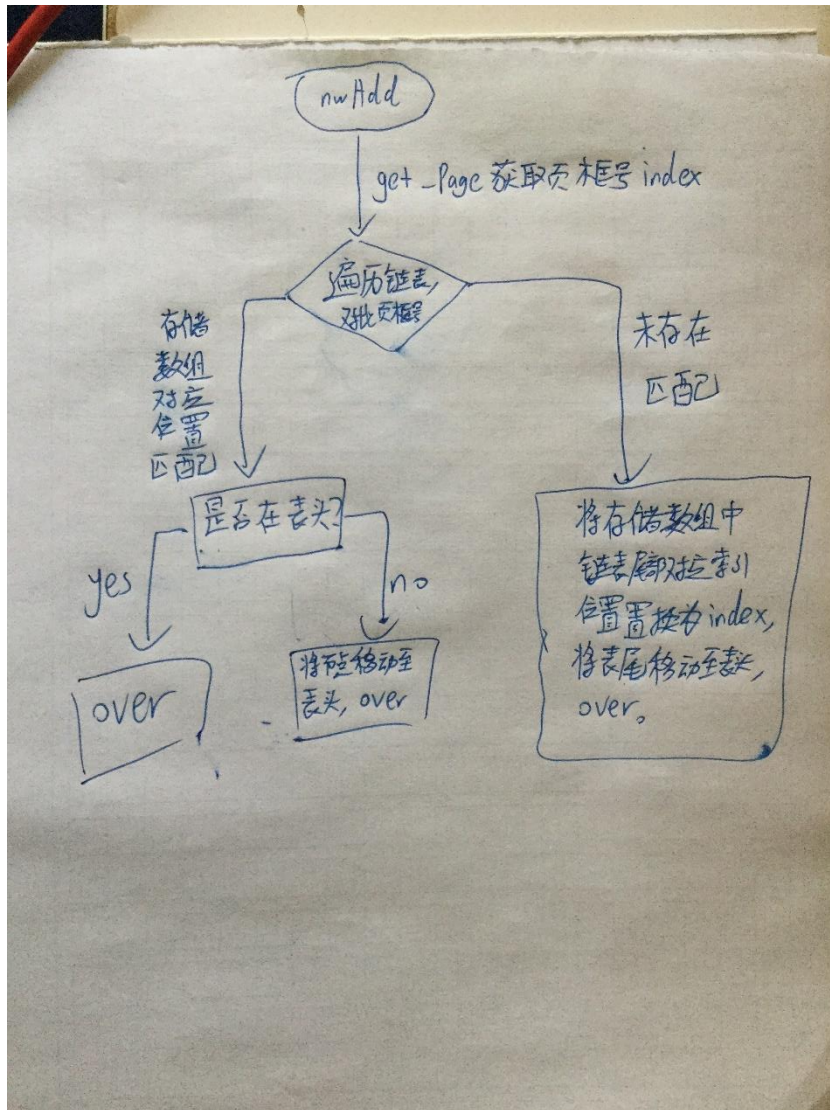 nwAdd
get_Page 获取页框号 index
遍历链表,
对比页框号
存储
数组
对应
位置
匹配
未存在
匹配
是否在表头?
yes
no
over
将节点移动至
表头, over
将存储数组中
链表尾部对应索引
位置置换为index,
将表尾移动至表头,
over。